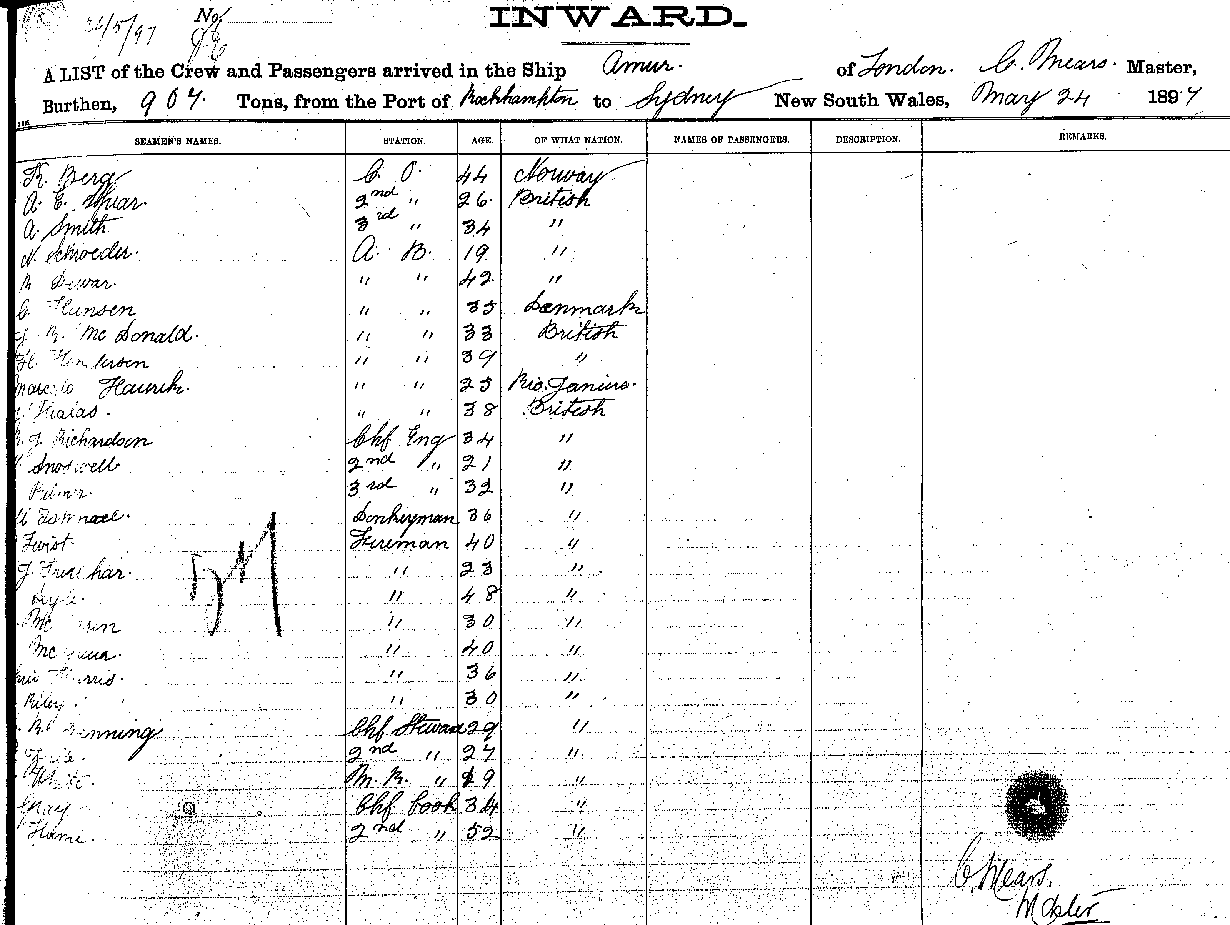 INWARD.
26/5/97 No.
A LIST of the Crew and Passengers arrived in the Ship Amur. of London. C. Mears. Master,
Burthen, 907. Tons, from the Port of Rockhampton to Sydney New South Wales, May 24 1897
SEAMEN'S NAMES. STATION. AGE. OF WHAT NATION. NAMES OF PASSENGERS. DESCRIPTION. REMARKS.
Berg C. O. 44 Norway
A. E. 2nd " 26. British
A Smith 3rd " 34 "
Schroeder. A. B. 19 "
Dewar. " " 42 "
C. Hansen " " 35 Denmark
Mc Donald. " " 33 British
" " 39 "
" " 25 Rio. Janiero.
" " 38 British
J Richardson Chf Eng 34 "
Snoswell 2nd " 21 "
3rd " 32 "
Donkeyman 36 "
Twist. Fireman 40 "
J " 23 "
" 48 "
Mc " 30 "
Mc " 40 "
" 36 "
Riley. " 30 "
Chf Steward 29 "
2nd " 27 "
White. M. R. " 19 "
Gray Chf Cook 34 "
Hame. 2nd " 52 "
C. Mears.
Master